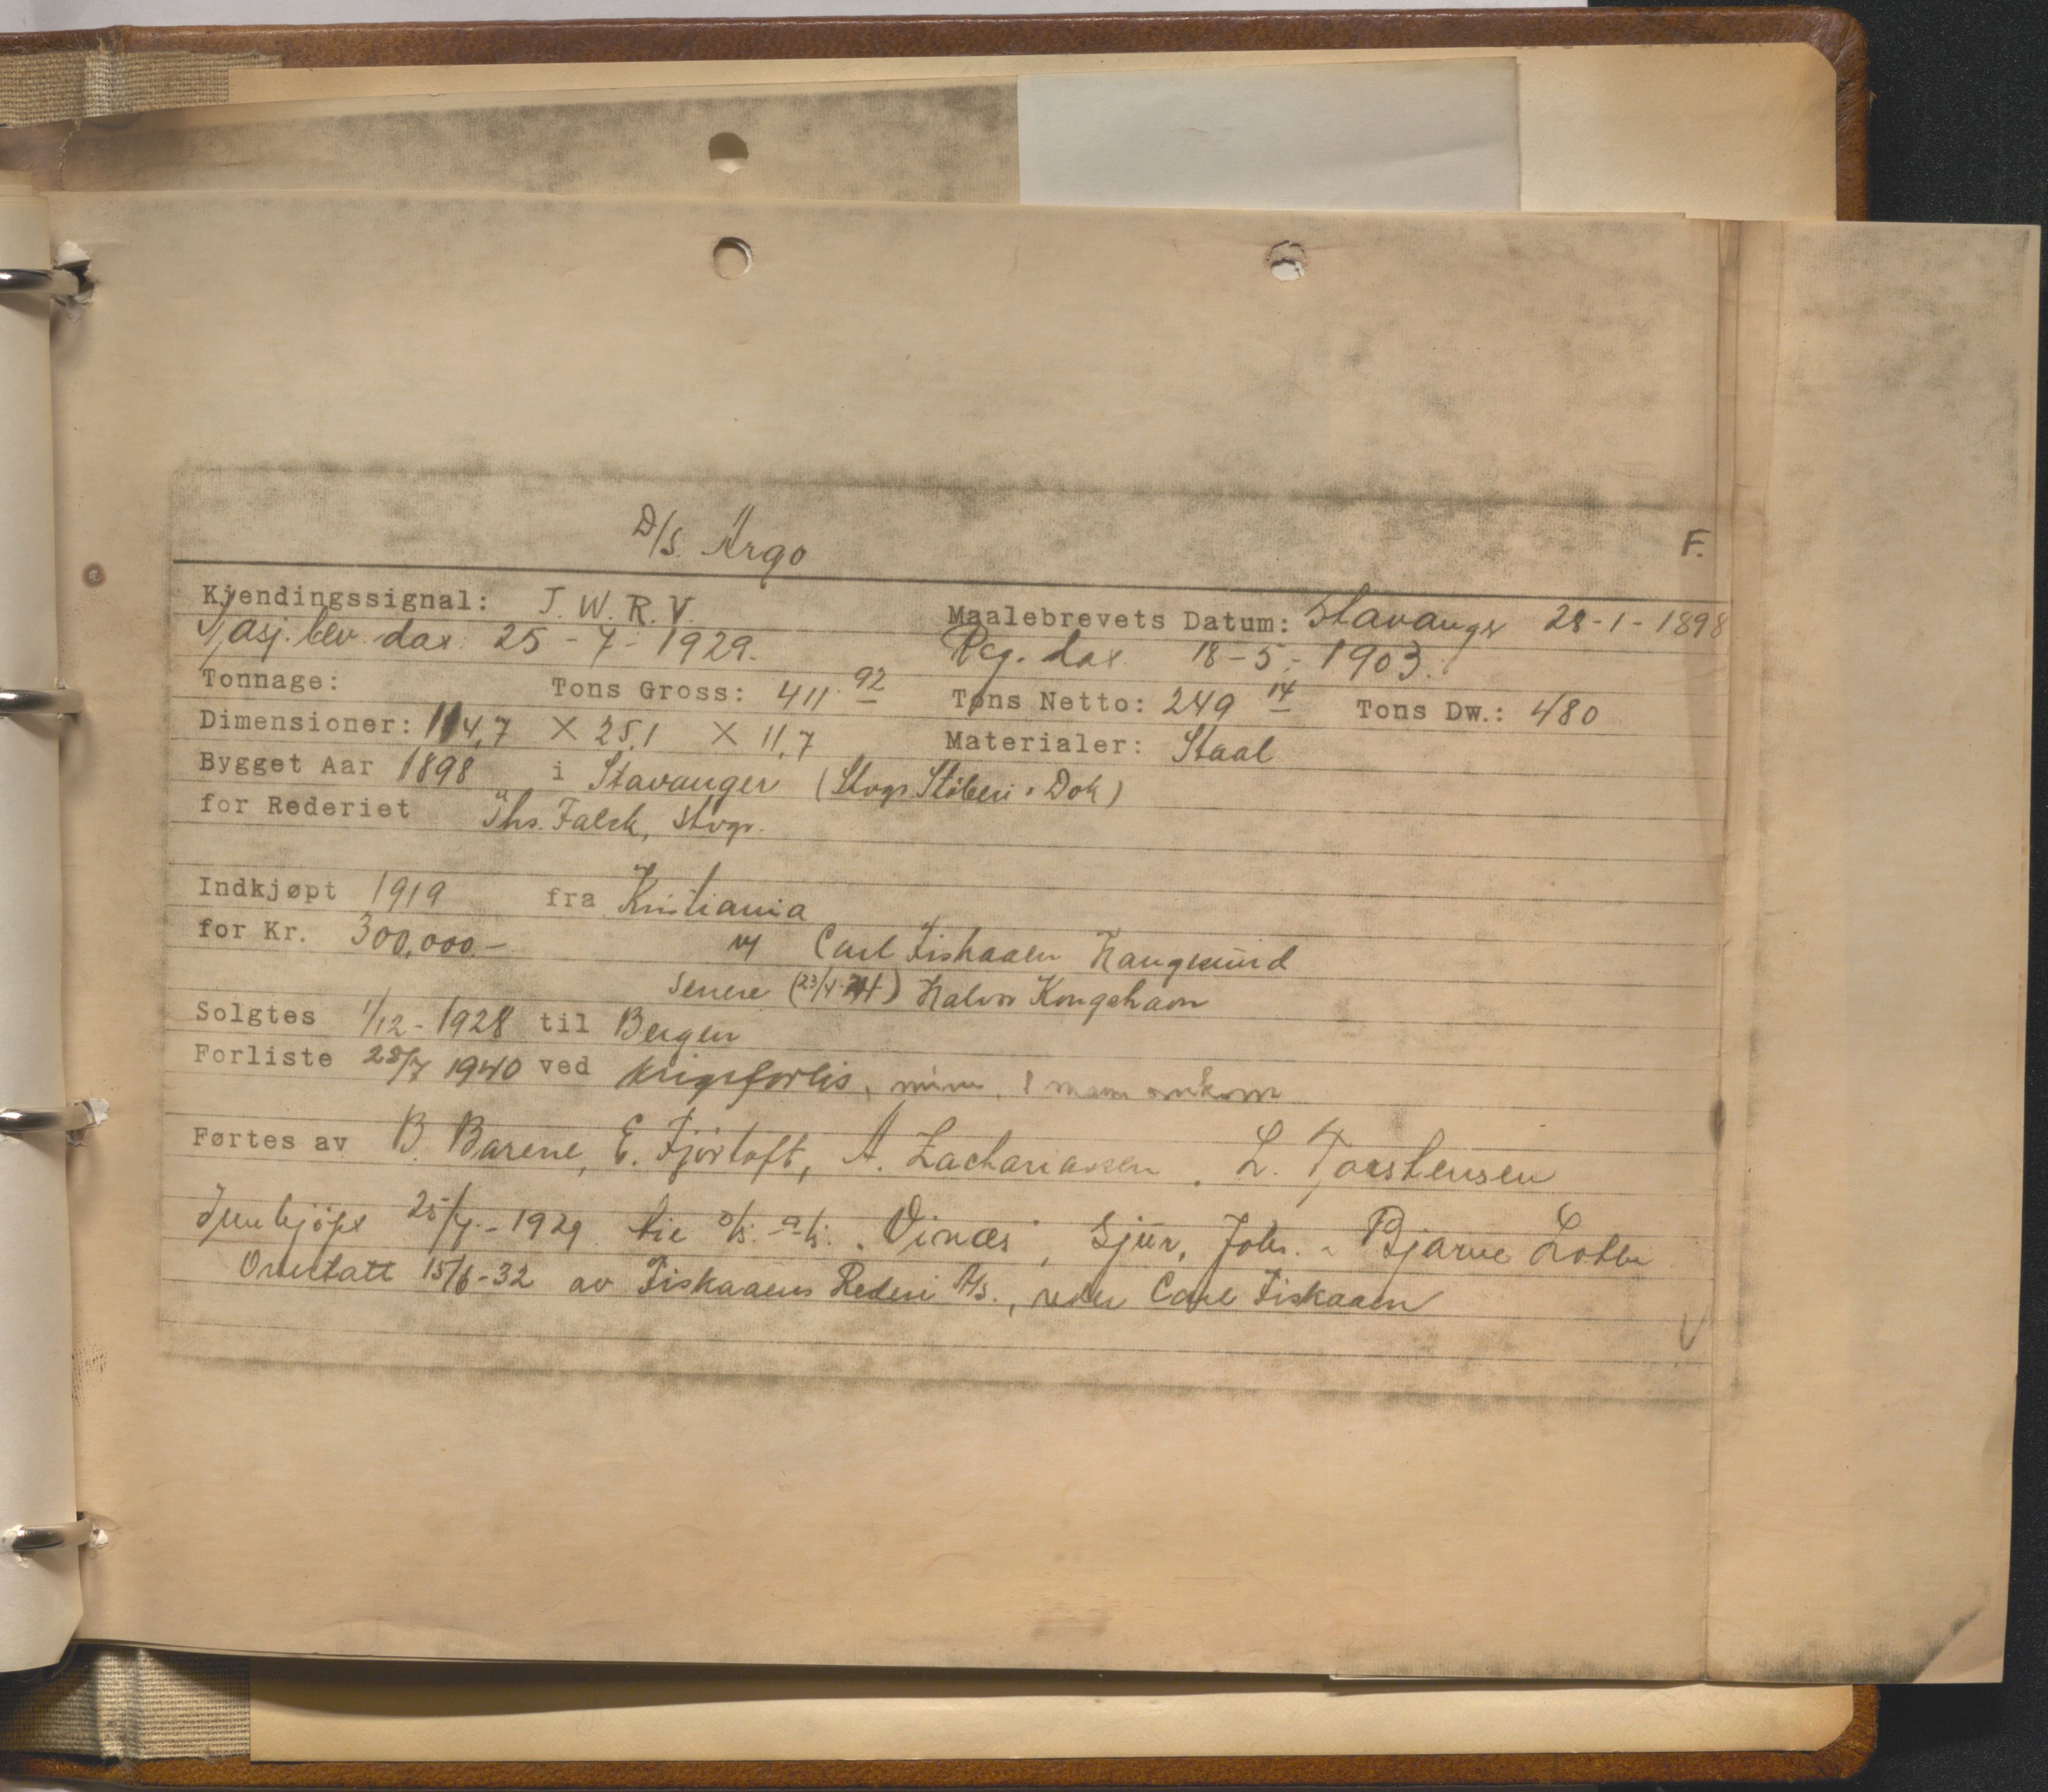 D/S. Argo
F.
Kjendingssignal: J. W. R. V.
Maalebrevets Datum: Stavanger 28-1-1898
Nasj. bev. dat. 25-7-1929.
Reg. dat. 18-5-1903.
Tonnage: Tons Gross: 411.92 Tons Netto: 249 14 Tons Dw.: 480
Dimensioner: 114,7 X 25,1 X 11,7 Materialer: Staal
Bygget Aar 1898 i Stavanger (Stvgr. Støberi & Dok)
for Rederiet Ths. Falck, Stvgr.
Indkjøpt 1919 fra Kristiania
for Kr. 300,000.- v/ Carl Fiskaaen Haugesund
senere (23/4-24) Halvor Kongshavn
Solgtes 1/12-1928 til Bergen
Forliste 28/7 1940 ved krigsforlis, mine, 1 mann omkom
Førtes av B. Barene, E. Fjørtoft, A. Zachariassen, L. Torstensen
Innkjøpt 25/7-1929 til D/S. A/S. "Vinæs", Sjur, Johs. & Bjarne Lothe
Overtatt 15/6-32 av Fiskaaens Rederi A/S., reder Carl Fiskaaen
V